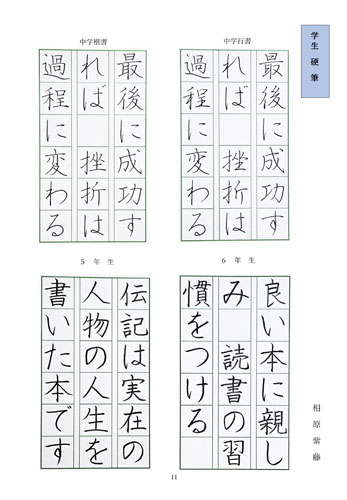 学生 硬筆
中学行書
最後に成功す
れば 挫折は
過程に変わる
中学楷書
最後に成功す
れば 挫折は
過程に変わる
6 年 生
良い本に親し
み 読書の習
慣をつける
5 年 生
伝記は実在の
人物の人生を
書いた本です
相原紫藤
11